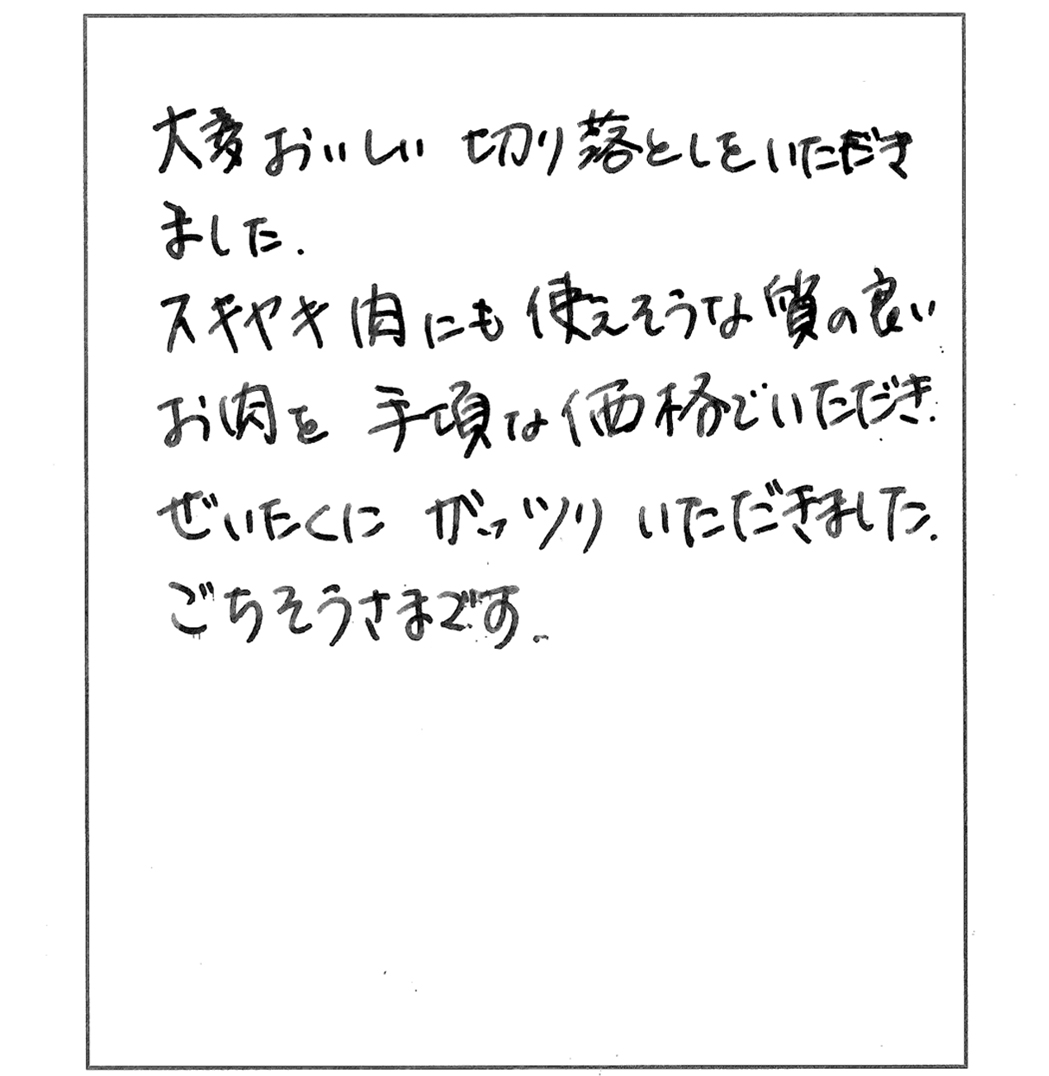 大変おいしい 切り落としをいただき
ました.
スキヤキ肉にも使えそうな質の良い
お肉を 手頃な価格でいただき.
ぜいたくに ガッツリ いただきました.
ごちそうさまです.